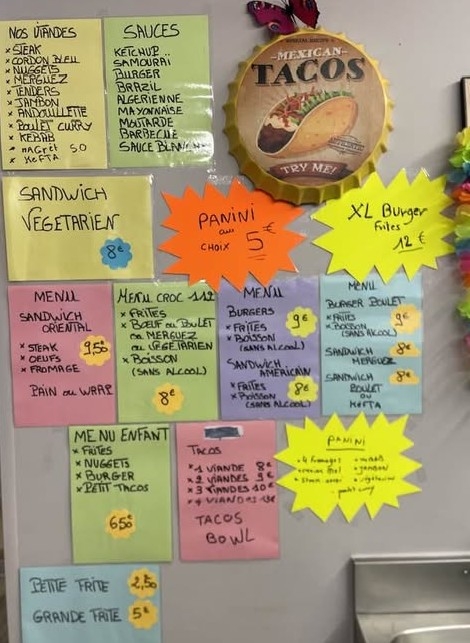 NOS VIANDES
* STEAK
* CORDON BLEU
* NUGGETS
* MERGUEZ
* TENDERS
* JAMBON
* ANDOUILLETTE
* POULET CURRY
* KEBAB
50
* KEFTA
SAUCES
KETCHUP
SAMOURAI
BURGER
BRAZIL
ALGERIENNE
MAYONNAISE
MOUTARDE
BARBECUE
SAUCE BLANCHE
MEXICAN
TACOS
TRY ME!
SANDWICH
VEGETARIEN
8€
PANINI
au
CHOIX 5€
XL Burger
Frites
12 €
MENU
SANDWICH
ORIENTAL
9,50
* STEAK
* OEUFS
* FROMAGE
PAIN ou WRAP
MENU CROC 112
* FRITES
* BŒUF ou POULET
ou MERGUEZ
ou VEGETARIEN
* BOISSON
(SANS ALCOOL)
8€
MENU
BURGERS
* FRITES
* BOISSON
(SANS ALCOOL)
9€
SANDWICH
AMERICAIN
* FRITES
* BOISSON
(SANS ALCOOL)
8€
MENU
BURGER POULET
* FRITES
* BOISSON
(SANS ALCOOL)
9€
SANDWICH
MERGUEZ
8€
SANDWICH
POULET
ou
KEFTA
8€
MENU ENFANT
* FRITES
* NUGGETS
* BURGER
* PETIT TACOS
650
TACOS
* 1 VIANDE 8€
* 2 VIANDES 9€
* 3 VIANDES 10€
* 4 VIANDES
TACOS
BOWL
PANINI
4 fromages
jambon
vegetarien
PETITE FRITE 2,50
GRANDE FRITE 5€